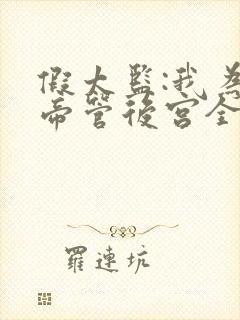 假太監:我為
帝管後宮全
羅連坑